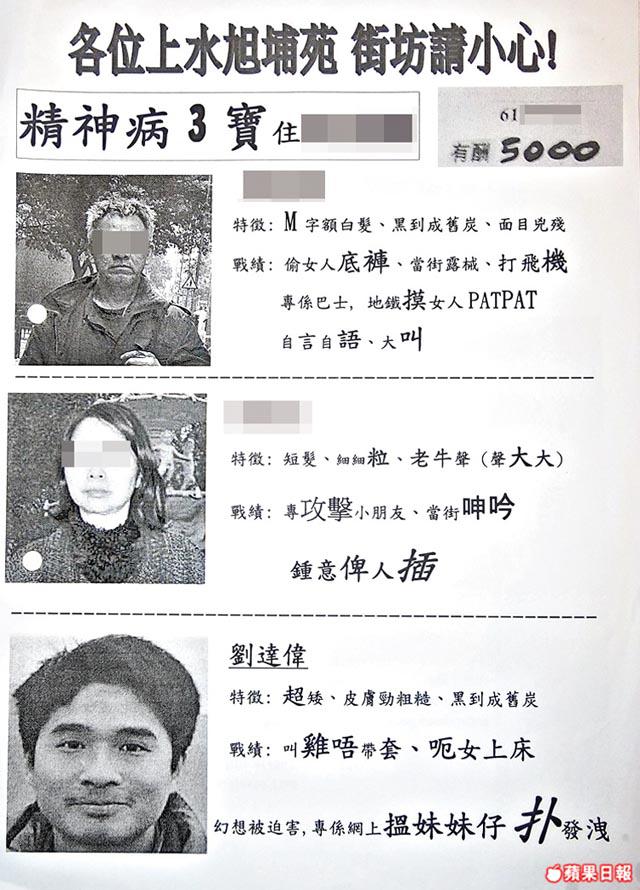 各位上水旭埔苑 街坊請小心!
精神病 3 寶 住
61
有酬 5000
特徵: M 字額白髮、黑到成舊炭、面目兇殘
戰績: 偷女人底褲、當街露械、打飛機
專係巴士, 地鐵摸女人 PATPAT
自言自語、大叫
特徵: 短髮、細細粒、老牛聲 (聲大大)
戰績: 專攻擊小朋友、當街呻吟
鍾意俾人插
劉達偉
特徵: 超矮、皮膚勁粗糙、黑到成舊炭
戰績: 叫雞唔帶套、呃女上床
幻想被迫害, 專係網上搵妹妹仔 扑發洩
蘋果日報